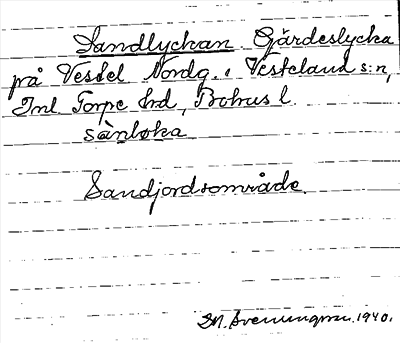 Sandlyckan. Gärdeslycka
på Vestel Nordg. i Vesteland s:n,
Inl Torpe hrd, Bohus l.
sànløka
Sandjordsområde.
1940.